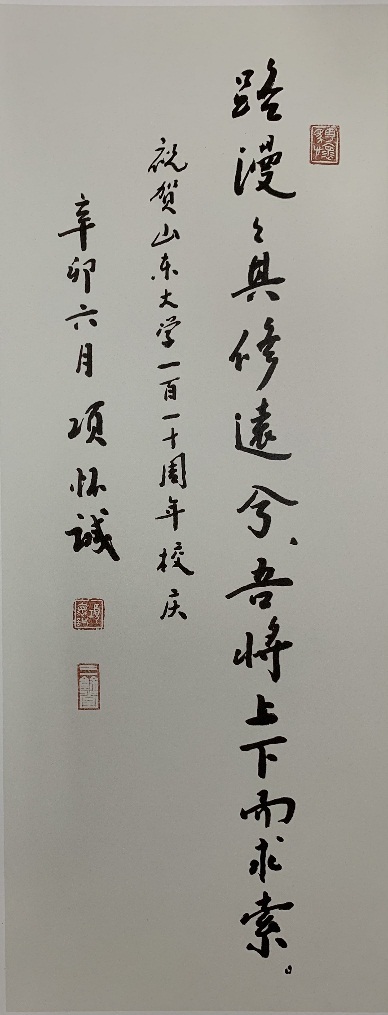 路漫〻其修遠兮、吾将上下而求索。
祝贺山东大学一百一十周年校庆
辛卯六月 项怀诚